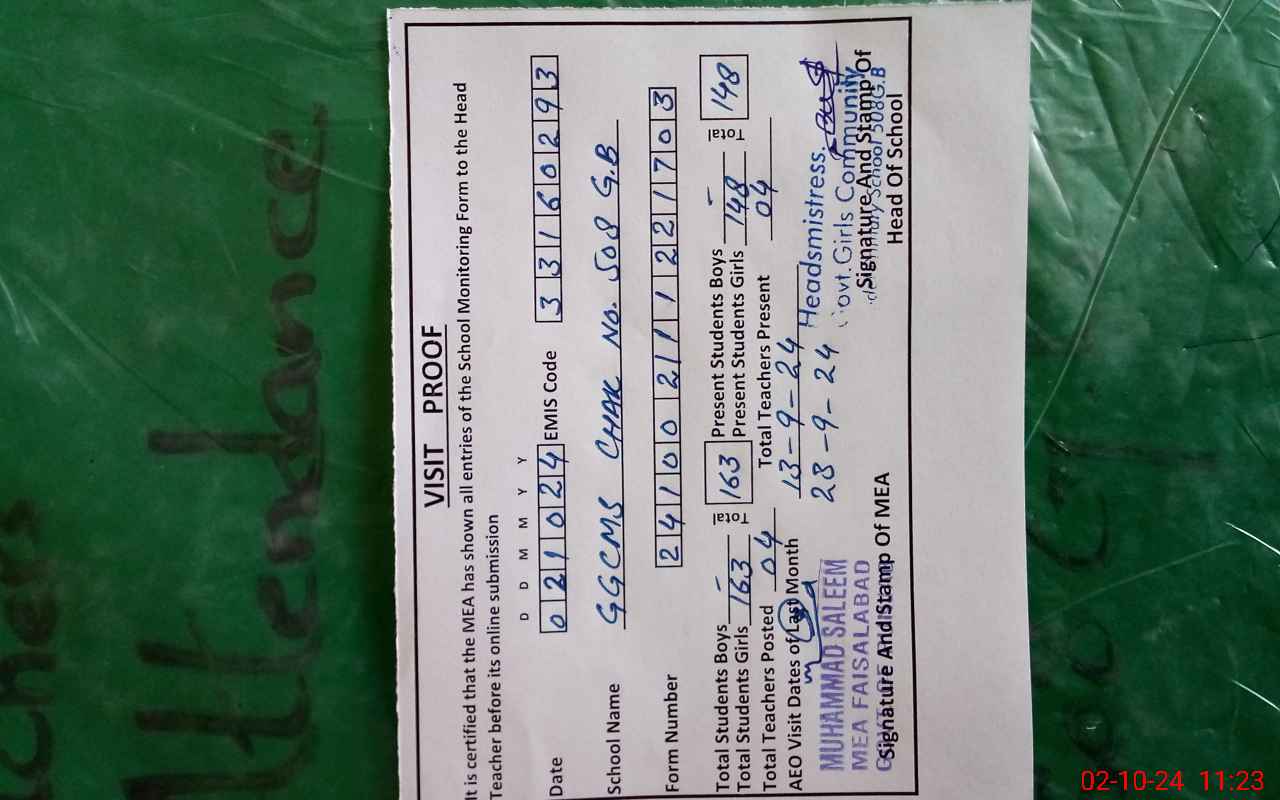 VISIT PROOF
It is certified that the MEA has shown all entries of the School Monitoring Form to the Head
Teacher before its online submission
D D M M Y Y
Date 0 2 1 0 2 4 EMIS Code 3 3 1 6 0 2 9 3
School Name GGCMS CHAK No. 508 G.B
Form Number 2 4 1 0 0 2 1 1 1 2 2 1 7 0 3
Total Students Boys - Total 163 Present Students Boys - Total 148
Total Students Girls 163 Present Students Girls 148
Total Teachers Posted 04 Total Teachers Present 04
AEO Visit Dates of Last Month 13-9-24
23-9-24
MUHAMMAD SALEEM
MEA FAISALABAD
Signature And Stamp Of MEA
Headsmistress.
Govt.Girls Community
School 508G.B
Signature And Stamp Of
Head Of School
Attendance
02-10-24 11:23